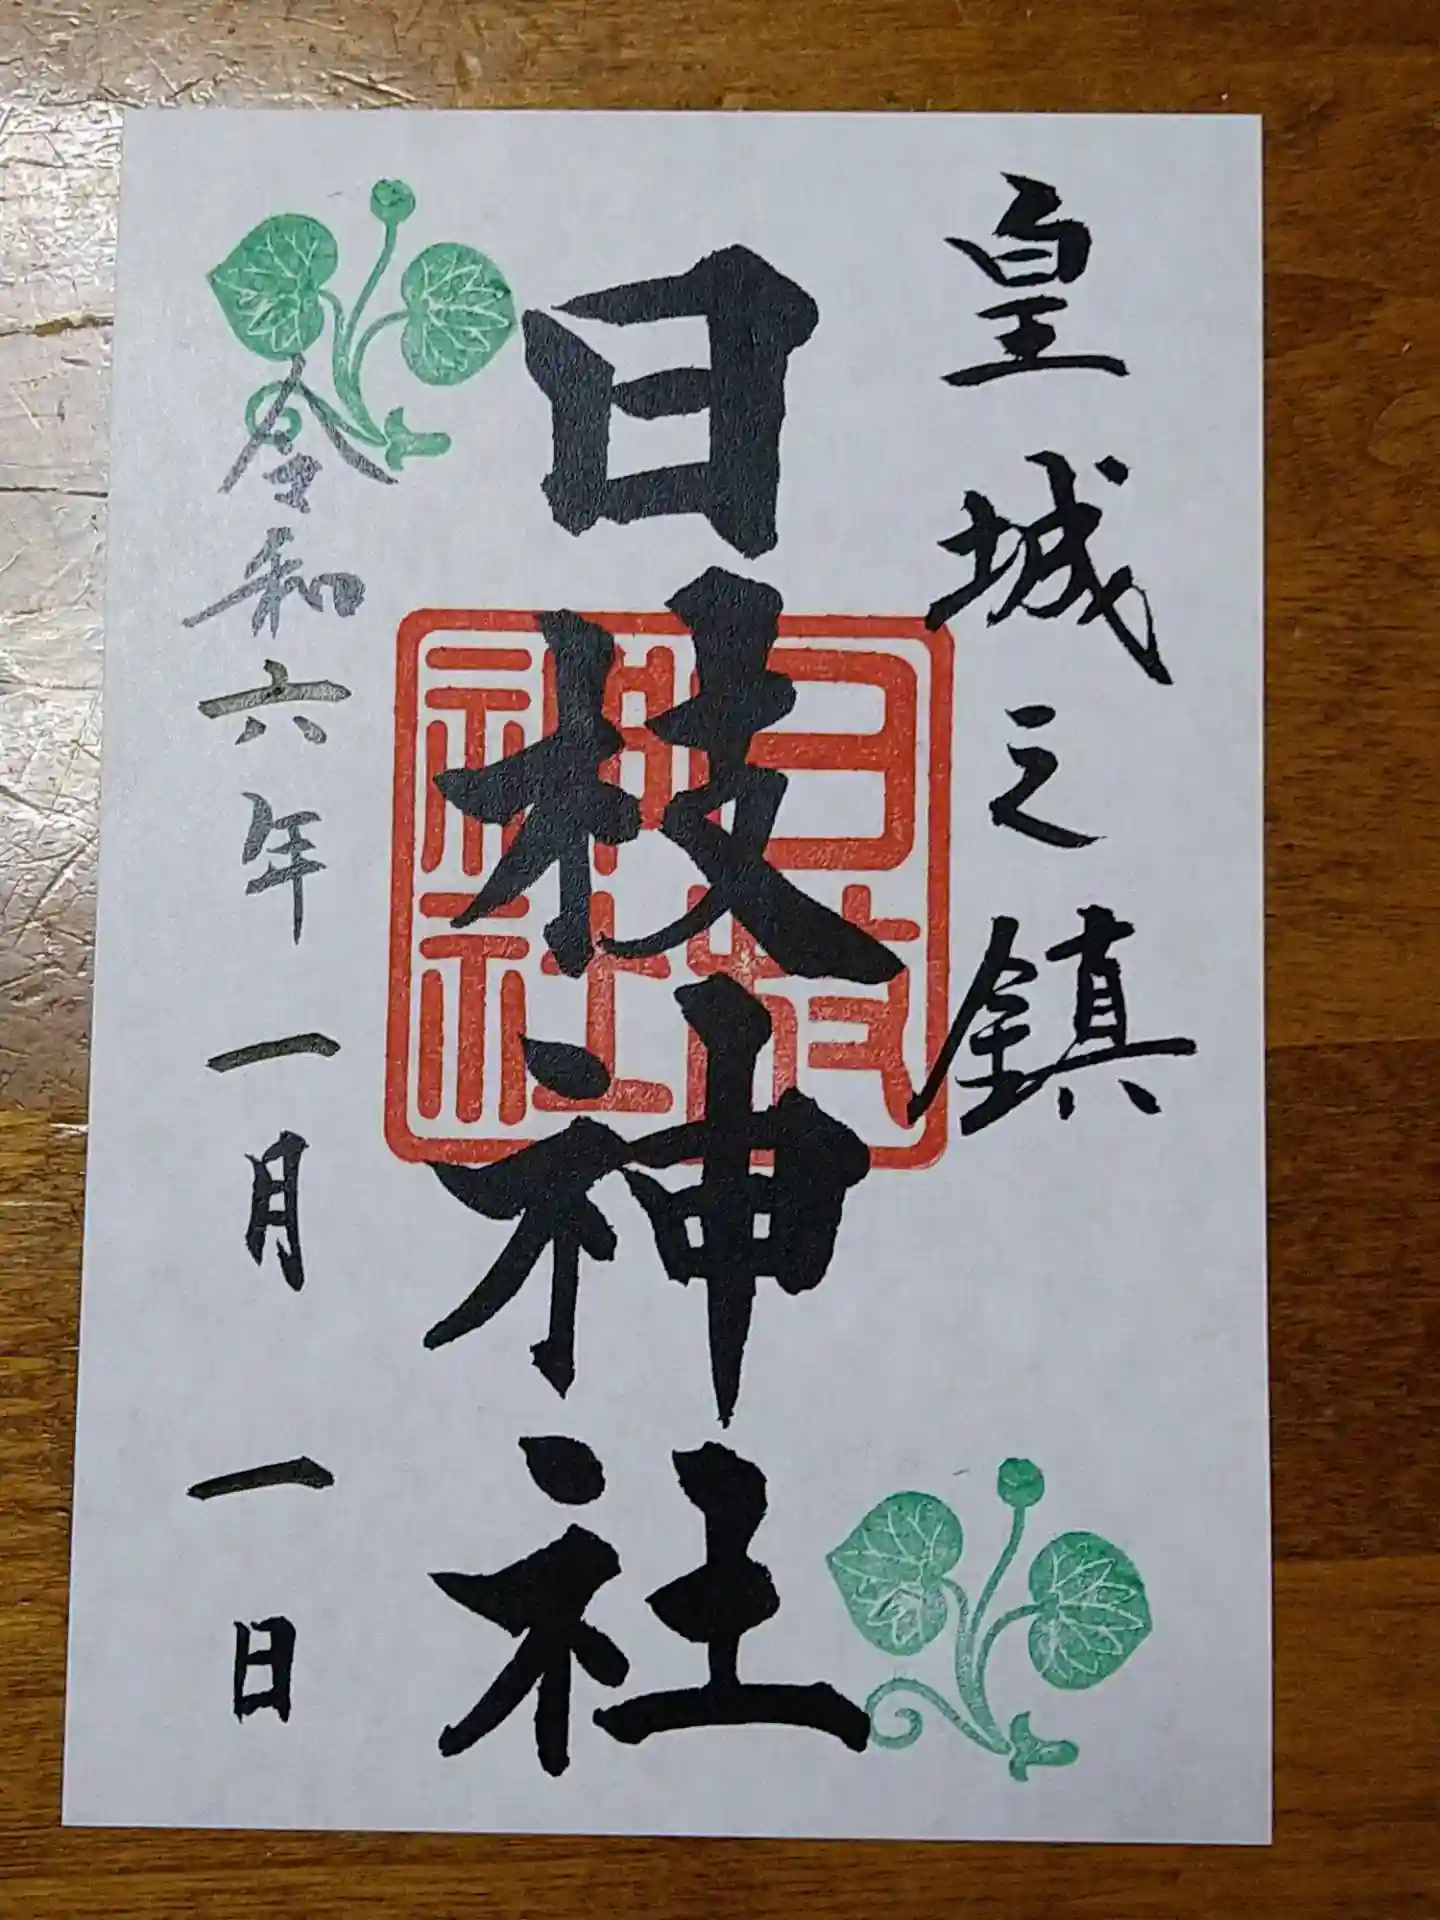 皇城之鎮
日枝神社
日枝神社
令和六年一月一日